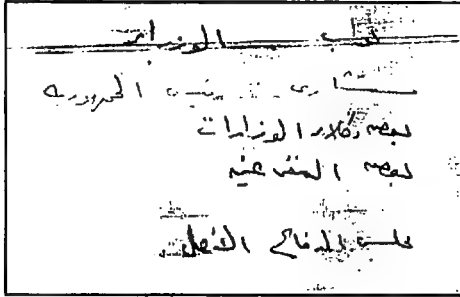 نواب الوزراء
مستشارى رئيس الجمهورية
بعض وكلاء الوزارات
بعض المتقاعدين
مجلس الدفاع الأعلى